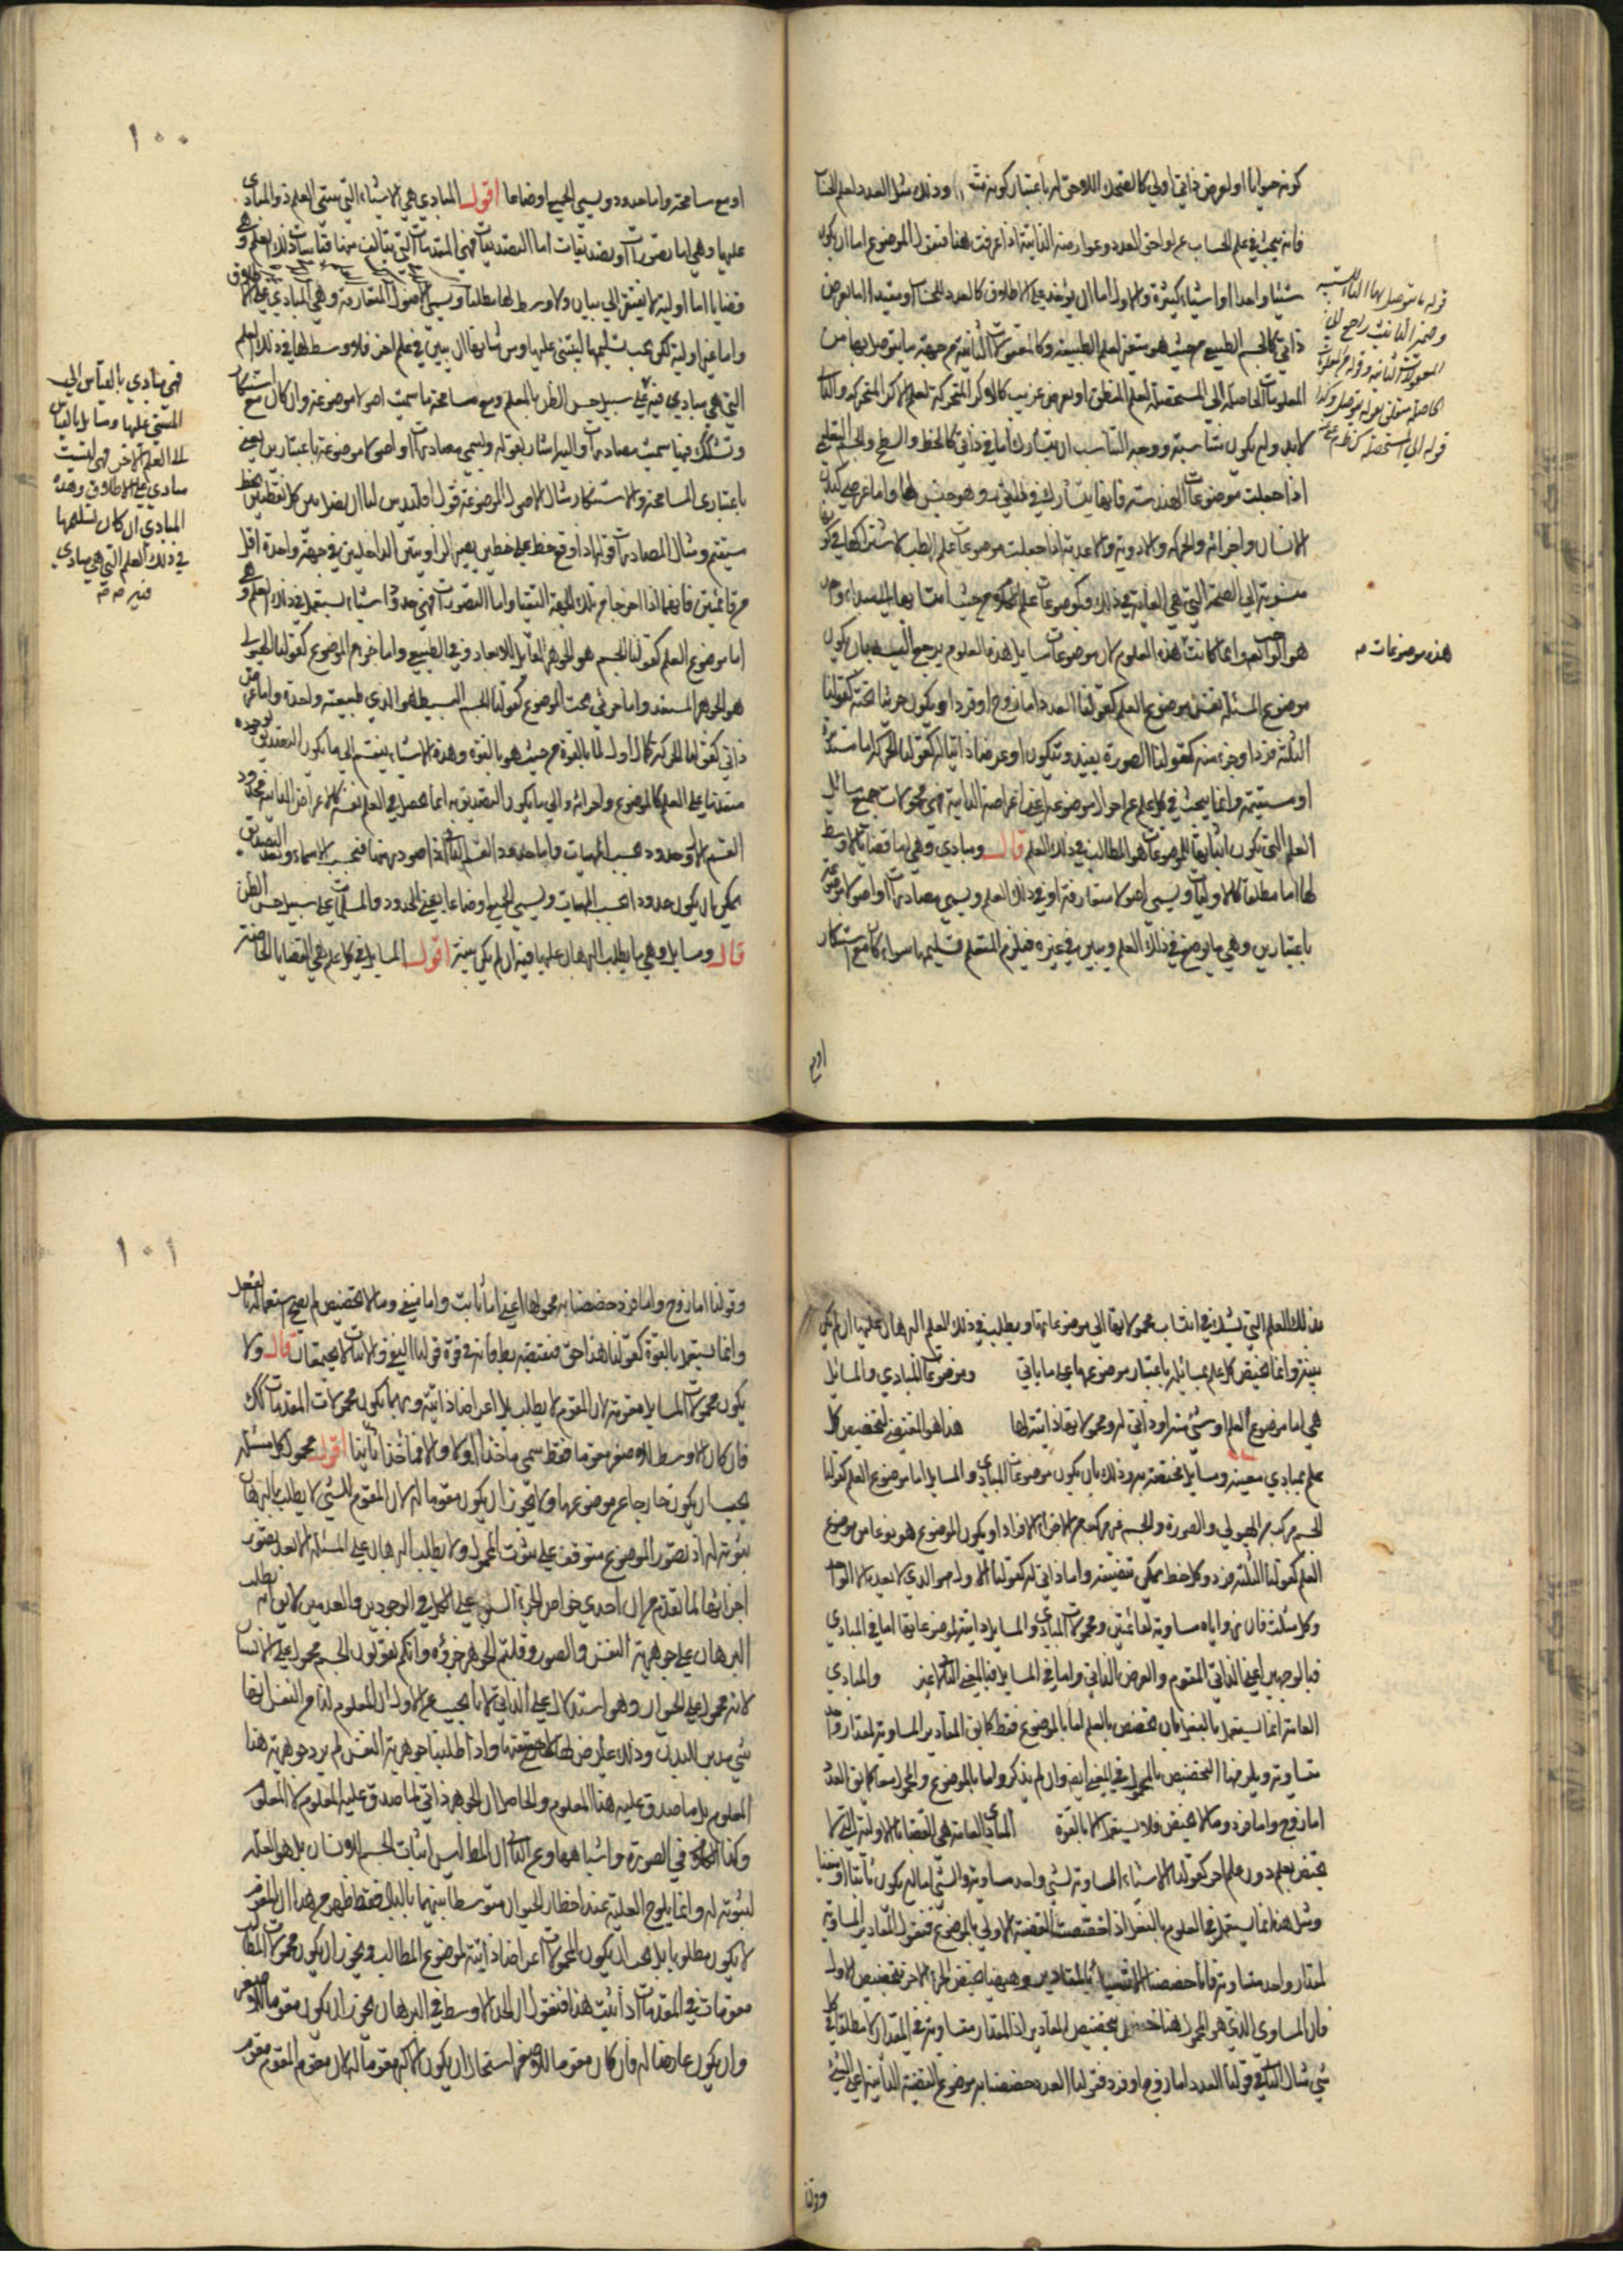 كونه حيوانا او لعرض ذاتي اولي كالضحك اللاحق له باعتبار كونه وذلك مثل العدد لعلم الحساب
فانه يبحث في علم الحساب عن لواحق العدد وعوارضه الذاتية اذا عرفت هذا فنقول الموضوع اما ان يكون
شيئا واحدا او اشياء كثيرة والاول اما ان يؤخذ على الاطلاق كالعدد للحساب او مقيدا اما بعرض
ذاتي كالجسم الطبيعي من حيث هو متغير لعلم الطبيعة وكالمعقولات الثانية من جهة ما يتوصل بها من
المعلومات الحاصلة الى المستحصلة لعلم المنطق او بعرض غريب كالاكر المتحركة لعلم الاكر المتحركة والثاني
لابد وان يكون متناسبة ووجه التناسب ان يتشارك اما في ذاتي كالخط والسطح والجسم التعليمي
اذا جعلت موضوعات الهندسة فانها يتشارك في وهو جنس لها واما عرضي كبدن
الانسان واجزائه والاحوال والادوية والاغذية اذا جعلت موضوعات علم الطب لاشتراكها في كونها
منسوبة الى الصحة التي هي الغاية في ذلك وكموضوعات علم الكلام من حيث انتسابها الى المبداء واحد
هو الواجب وانما كانت هذه العلوم لان موضوعات مسايل هذه العلوم يرجع اليه بان يكون
موضوع المسئلة نفس موضوع العلم كقولنا العدد اما زوج او فرد او يكون جزئيا تحته كقولنا
الثلثة فرد او جزء منه كقولنا الصورة يفسد ويتكون او عرضا ذاتيا له كقولنا الحركة اما مستديرة
او مستقيمة وانما يبحث في كل علم عن احوال موضوعه اعني اعراضه الذاتية فهي محمولات جميع مسائل
العلم التي يكون اثباتها للموضوعات هو المطالب في ذلك العلم قال ومبادي وهي اما قضايا لا وسط
لها اما مطلقا كالاوليات ويسمى اصولا متعارفة او في ذلك العلم ويسمى مصادرات او اصولا موضوعة
باعتبارين وهي ما يوضع في ذلك العلم ويبين في غيره فيلزم المتعلم تسليمها سواء كان مع استنكار
قوله ما يتوصل بها الباء للسببية
وضمير التانيث راجع الى
المعقولات الثانية وقوله من المعلومات
الحاصلة متعلق بقوله يتوصل وكذا
قوله الى المستحصلة
هذه موضوعات صح
او مع
١٠٠
او مع مسامحة واما حدود ويسمى الجميع اوضاعا اقول المبادي هي الاشياء التي يبتني العلم ذو المبادي
عليها وهي اما تصورات او تصديقات اما التصديقات فهي المقدمات التي يتألف منها قياسات ذلك العلم وهي
قضايا اما اولية لا يفتقر الى بيان ولا وسط لها مطلقا ويسمى الاصول المتعارفة وهي المبادي على الاطلاق
واما غير اولية لكن يجب تسليمها ليبتنى عليها ومن شانها ان يبين في علم اخر فلا وسط لها في ذلك العلم
التي هي مبادي فيه على سبيل حسن الظن بالمعلم ومع مسامحة ما سميت اصولا موضوعة وان كان مع استنكار
وتشكك فيها سميت مصادرات واليه اشار بقوله ويسمى مصادرات او اصولا موضوعة باعتبارين يعني
باعتباري المسامحة والاستنكار مثال الاصول الموضوعة قول اقليدس لنا ان نصل بين كل نقطتين بخط
مستقيم ومثال المصادرات قوله اذا وقع خط على خطين يصير الزاويتين الداخلتين في جهة واحدة اقل
من قائمتين فانهما اذا اخرجا في تلك الجهة التقيا واما التصورات فهي حدود اشياء يستعمل في ذلك العلم وهي
اما موضوع العلم كقولنا الجسم هو الجوهر القابل للابعاد في الطبيعي واما جزء الموضوع كقولنا الهيولى
هو الجوهر المستعد واما جزئي تحت الموضوع كقولنا الجسم البسيط هو الذي طبيعته واحدة واما عرض
ذاتي كقولنا الحركة كمال اول لما بالقوة من حيث هو بالقوة وهذه الاشياء ينقسم الى ما يكون التصديق بوجوده
متقدما على العلم كالموضوع واجزائه والى ما يكون التصديق به انما يحصل في العلم نفسه كالاعراض الذاتية فحدود
القسم الاول حدود بحسب الماهيات واما حدود القسم الثاني اذا صودر بها فبحسب الاسماء وبعد التصديق
يمكن ان يكون حدودا بحسب الماهيات ويسمى الجميع اوضاعا يعني الحدود والمسلمات على سبيل حسن الظن
قال ومسايل وهي ما يطلب البرهان عليها فيه ان لم يكن بينة اقول المسايل في كل علم هي القضايا الخاصة
فهي مبادي بالقياس الى
المبتنى عليها ومسايل بالقياس
الى العلم الاخر فهي ليست
مبادي على الاطلاق وهذه
المبادي ان كان تسليمها
في ذلك العلم التي هي مبادي
فيه صح صح
بذلك العلم التي يشك في انتساب محمولاتها الى موضوعاتها ويطلب في ذلك العلم البرهان عليها ان لم يكن
بينة وانما يختص كل علم بمسائله باعتبار موضوعها على ما ياتي وموضوعا المبادي والمسائل
هي اما موضوع العلم او شيء منه او ذاتي له ومحمولاتها ذاتية لها هذا هو المقتضي لتخصيص كل
علم بمبادي معينة ومسايل مختصة به وذلك بان يكون موضوعات المبادي والمسايل اما موضوع العلم كقولنا
الجسم مركب من الهيولى والصورة والجسم غير مركب من الاجزاء الافراد او يكون الموضوع هو نوعا من موضوع
العلم كقولنا الثلثة فرد وكل خط يمكن تنصيفه واما ذاتي له كقولنا الاول هو الذي لا يعده الا الواحد
وكل مثلث فان زواياه مساوية لقائمتين ومحمولات المبادي والمسايل ذاتية لموضوعاتها اما في المبادي
فبالوجهين اعني الذاتي المقوم والعرض الذاتي واما في المسايل فبالمعنى الثاني لا غير والمبادي
العامة انما يستعمل بالفعل بان تخصص بالعلم اما بالموضوع فقط كما يق المقادير المساوية لمقدار واحد
متساوية ويلزمها التخصيص بالمحمول في المعنى ايضا وان لم يذكر واما بالموضوع والمحمول معا كما يق العدد
اما زوج واما فرد وما لا يخصص فلا يستعمل الا بالقوة المبادي العامة هي القضايا الاولية التي لا
تختص بعلم دون علم اخر كقولنا الاشياء المساوية لشيء واحد متساوية والشيء اما ان يكون ثابتا او منفيا
ومثل هذه انما يستعمل في العلوم بالفعل اذا تخصصت القضية الاولى بالموضوع فنقول المقادير المساوية
لمقدار واحد متساوية فانا خصصنا الاشياء بالمقادير وههنا تخصص الجزء الاخر بتخصيص الاول
فان المساوي الذي هو المحمول هنا تخصص بتخصيص المقادير اذ المقدار متساوية في المقدار لا مطلقا في كل
شيء مثال الثاني قولنا العدد اما زوج او فرد فقولنا العدد خصصنا به موضوع القضية الثانية اعني الشيء
وقولنا
١٠١
وقولنا اما زوج واما فرد خصصنا به محمولها اعني اما ثابت واما منفي وما لا تخصص لم يصح استعماله بالفعل
وانما يستعمل بالقوة كقولنا هذا حق فنقيضه باطل فانه في قوة قولنا النفي والاثبات لا يجتمعان قال ولا
يكون محمولات المسايل مقومة لان المقوم لا يطلب بل اعراضا ذاتية وربما يكون محمولات المقدمات كك
فان كان الاوسط للاصغر مقوما فقط سمي ماخذا اولا والا فماخذا ثانيا اقول محمول كل مسئلة
يجب ان يكون خارجا عن موضوعها ولا يجوز ان يكون مقوما له لان المقوم للشيء لا يطلب بالبرهان
ثبوته له اذ تصور الموضوع متوقف على ثبوت المحمول ولا يطلب البرهان على المسئلة الا بعد تصور
اجزائها لما تقدم من ان احدى خواص الجزء السبق على الكل في الوجودين والعدمين لا يق انه يطلب
البرهان على جوهرية النفس والصور وقلتم الجوهر جزؤه وانكم تقولون الجسم محمول على الانسان
لانه محمول على الحيوان وهو استدلال على الذاتي لانا نجيب عن الاول ان المعلوم لنا من النفس انها
شيء مدبر للبدن وذلك عارض لها لا حقيقتها واذا طلبنا جوهرية النفس لم يرد جوهرية هذا
المعلوم بل ما صدق عليه هذا المعلوم والحاصل ان الجوهر ذاتي لما صدق عليه المعلوم لا المعلوم
وكذا الكلام في الصورة واشباهها وعن الثاني ان المط ليس اثبات الجسم للانسان بل هو العلة
لثبوته له وانما يلوح العلية عند اخطار الحيوان متوسطا بينهما بالبال فقط ظهر من هذا ان المقوم
لا يكون مطلوبا بل يجب ان يكون المحمولات اعراضا ذاتية لموضوع المطالب ويجوز ان يكون محمولات المطالب
مقومات في المقدمات اذا ثبت هذا فنقول ان الحد الاوسط في البرهان يجوز ان يكون مقوما للاصغر
وان يكون عارضا له فان كان مقوما للاصغر استحال ان يكون الاكبر مقوما له لان مقوم المقوم مقوم